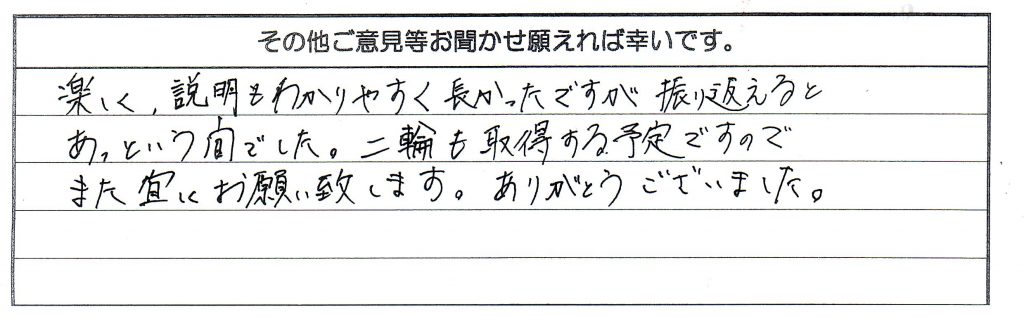 その他ご意見等お聞かせ願えれば幸いです。
楽しく、説明もわかりやすく長かったですが振り返えると
あっという間でした。二輪も取得する予定ですので
また宜しくお願い致します。ありがとうございました。